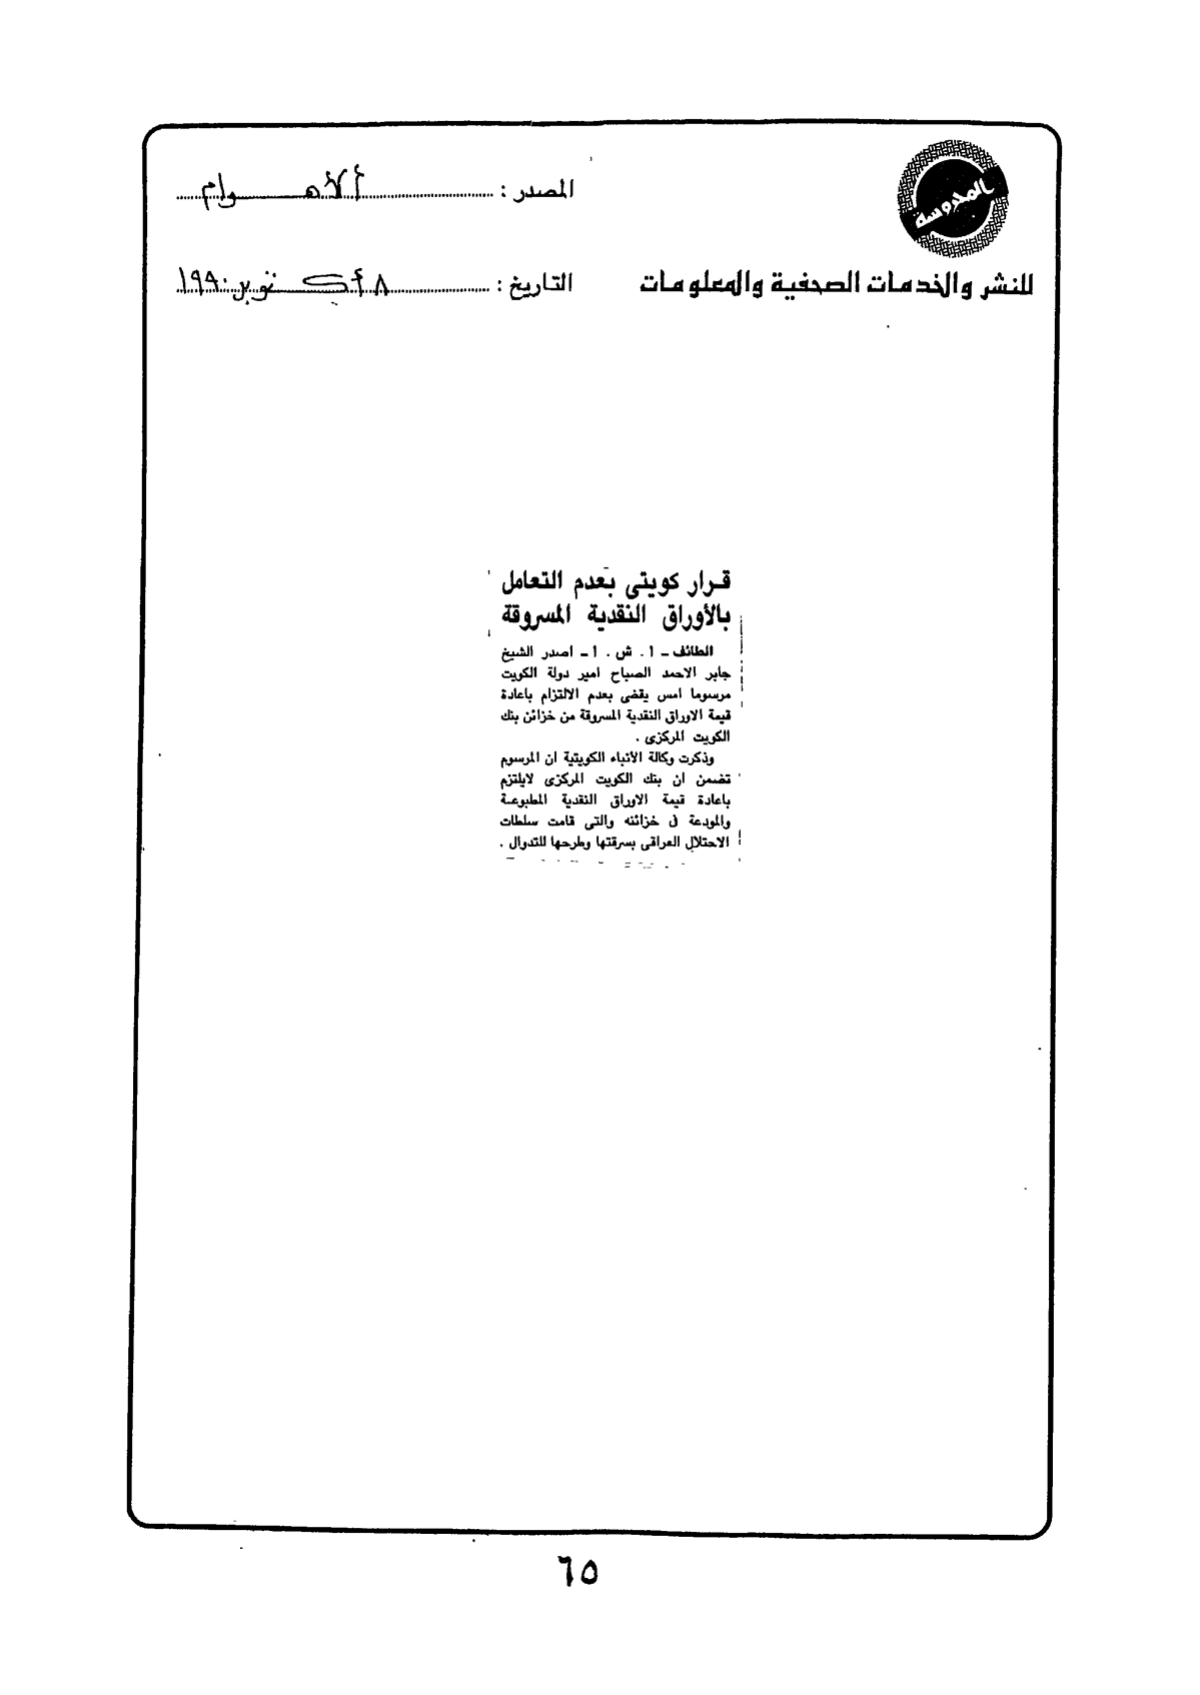 المحروسة
المصدر : الأهـــرام
للنشر والخدمات الصحفية والمعلومات
التاريخ : ٨ أكتوبر ١٩٩٠
قرار كويتى بعدم التعامل
بالأوراق النقدية المسروقة
الطائف - ا . ش . ا - اصدر الشيخ
جابر الاحمد الصباح امير دولة الكويت
مرسوما امس يقضى بعدم الالتزام باعادة
قيمة الاوراق النقدية المسروقة من خزائن بنك
الكويت المركزى .
وذكرت وكالة الأنباء الكويتية ان المرسوم
تضمن ان بنك الكويت المركزى لايلتزم
باعادة قيمة الاوراق النقدية المطبوعة
والمودعة فى خزائنه والتى قامت سلطات
الاحتلال العراقى بسرقتها وطرحها للتدوال .
٦٥